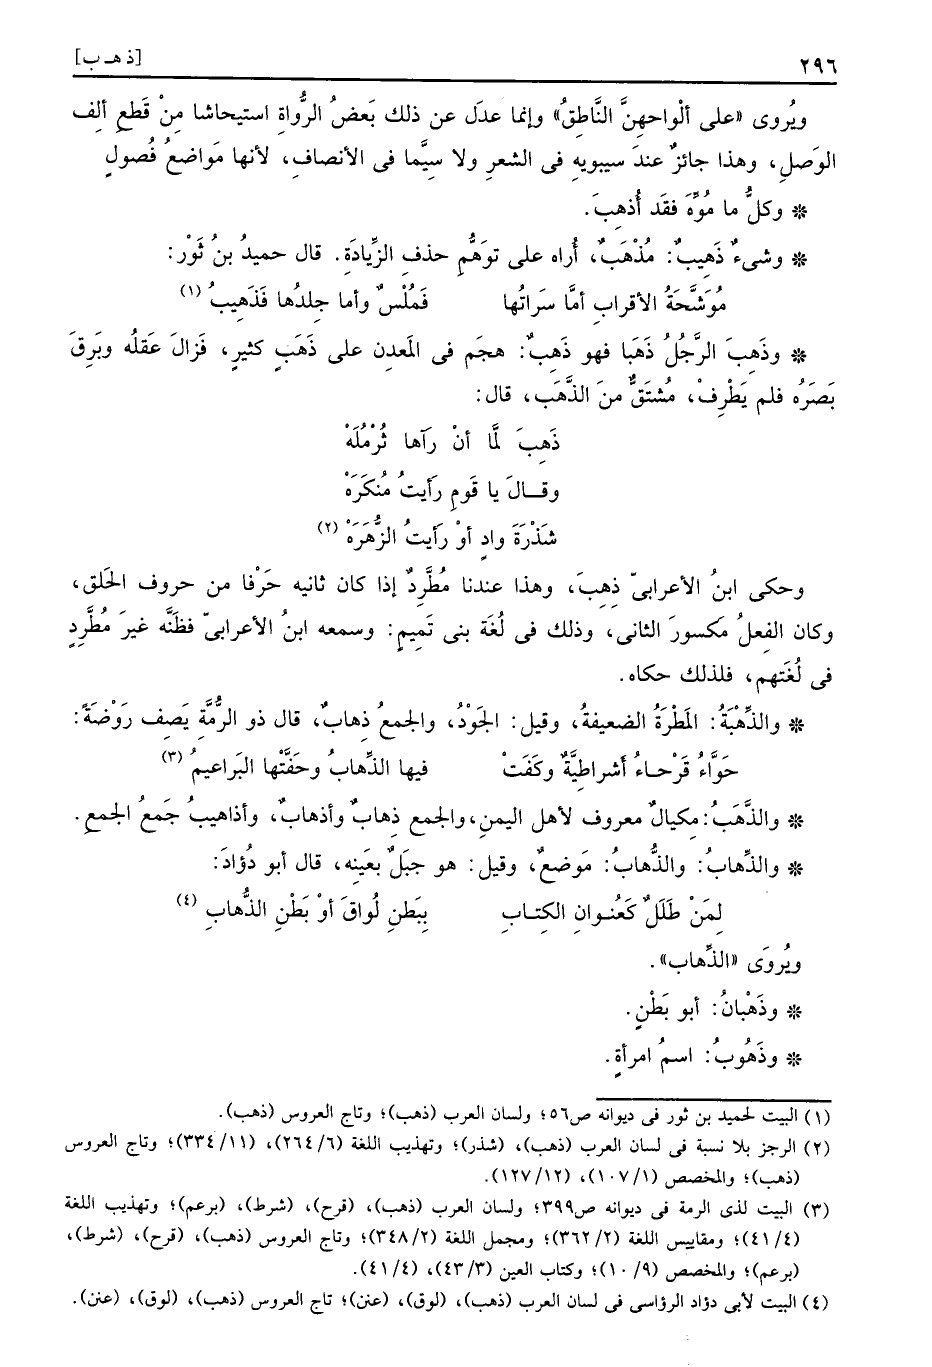 ٢٩٦ [ذ هـ ب]
ويُروى «على ألْواحهِنَّ النَّاطِقُ» وإنما عدَل عن ذلك بَعضُ الرُّواة استيحاشا مِنْ قَطعِ ألف
الوَصلِ، وهذا جائزٌ عندَ سيبويهِ فى الشعرِ ولا سيَّما فى الأنصاف، لأنها مَواضعُ فُصولٍ
❊ وكلُّ ما مُوِّهَ فقَد أُذهِبَ.
❊ وشىءٌ ذَهيبٌ: مُذْهَبٌ، أُراه على توَهُّمِ حذفِ الزِّيادَةِ. قال حميدُ بنُ ثَوْر:
مُوَشَّحَةُ الأقرابِ أمَّا سَراتُها فَمُلْسٌ وأما جلدُها فَذَهيبُ (١)
❊ وذَهِبَ الرَّجُلُ ذَهَبا فهو ذَهِبٌ: هجَم فى المَعدن على ذَهَبٍ كثيرٍ، فَزالَ عَقلُه وبَرِقَ
بَصَرُه فلم يَطْرِفْ، مُشتَقٌّ منَ الذَّهَبِ، قال:
ذَهِبَ لمَّا أنْ رَآها ثُرْمُلَهْ
وقــالَ يا قَومِ رَأيتُ مُنكَرَهْ
شَذْرَةَ وادٍ أوْ رَأيتُ الزُّهَرَهْ (٢)
وحكى ابنُ الأعرابىّ ذِهِبَ، وهذا عندنا مُطَّرِدٌ إذا كان ثانيه حَرْفا من حروف الحَلقِ،
وكان الفعلُ مَكسورَ الثانى، وذلك فى لُغَة بنى تَميمٍ: وسمعه ابنُ الأعرابىّ فظَنَّه غيرَ مُطَّرِدٍ
فى لُغَتهِم، فلذلك حكاه.
❊ والذِّهْبَةُ: المَطرَةُ الضعيفةُ، وقيل: الجَوْدُ، والجمعُ ذِهابٌ، قال ذو الرُّمَّةِ يَصِف رَوْضَةً:
حَوَّاءُ قَرْحـاءُ أشراطِيَّةٌ وكَفَتْ فيها الذِّهابُ وحَفَّتْها البَراعيمُ (٣)
❊ والذَّهَبُ: مكيالٌ معروف لأهل اليمنِ، والجمع ذِهابٌ وأذهابٌ، وأذاهيبُ جَمعُ الجمعِ.
❊ والذِّهابُ: والذُّهابُ: مَوضعٌ، وقيل: هو جبَلٌ بعَينه، قال أبو دُؤادَ:
لِمَنْ طَلَلٌ كَعُنـوانِ الكتـابِ بِبَطنِ لُواقَ أوْ بَطْنِ الذُّهابِ (٤)
ويُروَى «الذِّهابِ».
❊ وذَهْبانُ: أبو بَطْنٍ.
❊ وذَهُوبُ: اسمُ امرأةٍ.
(١) البيت لحميد بن ثور فى ديوانه ص٥٦؛ ولسان العرب (ذهب)؛ وتاج العروس (ذهب).
(٢) الرجز بلا نسبة فى لسان العرب (ذهب)، (شذر)؛ وتهذيب اللغة (٢٦٤/٦)، (٣٣٤/١١)؛ وتاج العروس
(ذهب)؛ والمخصص (١٠٧/١)، (١٢٧/١٢).
(٣) البيت لذى الرمة فى ديوانه ص٣٩٩؛ ولسان العرب (ذهب)، (قرح)، (شرط)، (برعم)؛ وتهذيب اللغة
(٤١/٤)؛ ومقاييس اللغة (٣٦٢/٢)؛ ومجمل اللغة (٣٤٨/٢)؛ وتاج العروس (ذهب)، (قرح)، (شرط)،
(برعم)؛ والمخصص (١٠/٩)؛ وكتاب العين (٤٣/٣)، (٤١/٤).
(٤) البيت لأبى دؤاد الرؤاسى فى لسان العرب (ذهب)، (لوق)، (عنن)؛ تاج العروس (ذهب)، (لوق)، (عنن).